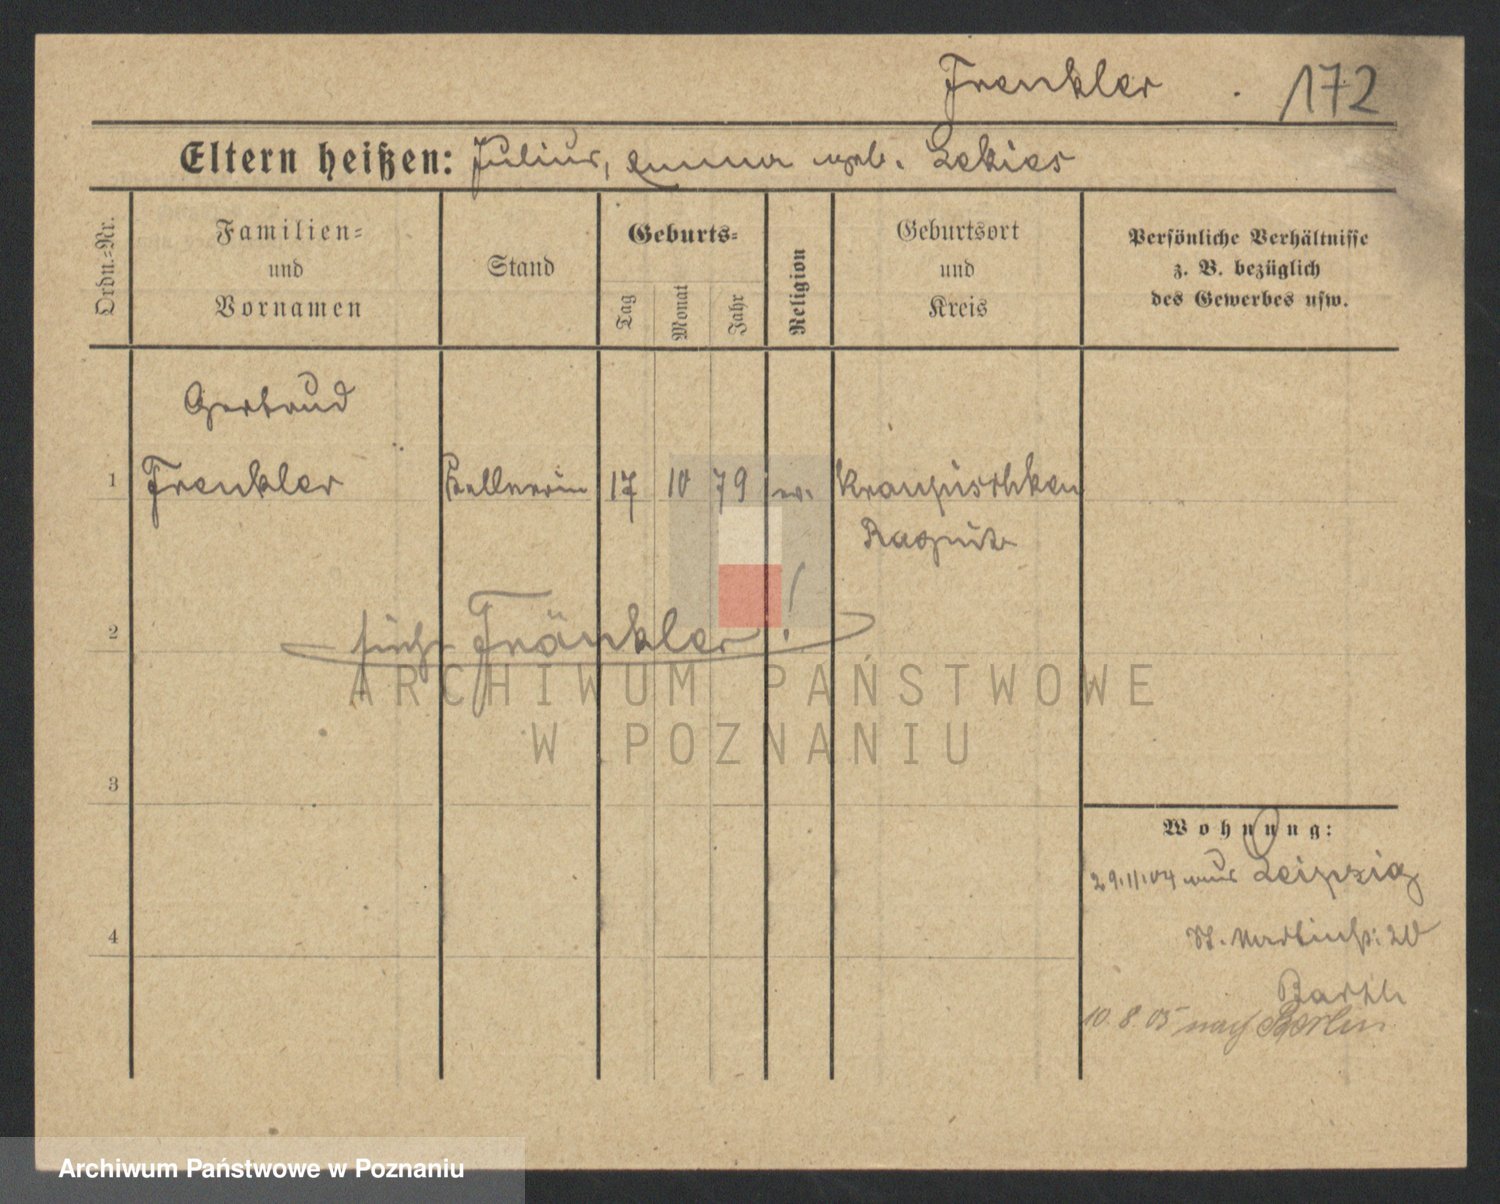 Frenkler . 172
Eltern heißen: Julius, Emma geb. Lekies
Ordn.-Nr.
Familien-
und
Vornamen
Stand
Geburts-
Tag
Monat
Jahr
Religion
Geburtsort
und
Kreis
Persönliche Verhältnisse
z. B. bezüglich
des Gewerbes usw.
Gertrud
1 Frenkler Kellnerin 17 10 79 ev. Kraupischken
Ragnit
2 siehe Fränkler!
ARCHIWUM PAŃSTWOWE
W POZNANIU
3
Wohnung:
29.11.04 aus Leipzig
4 St. Martinstr. 20
10.8.05 nach Berlin
Archiwum Państwowe w Poznaniu